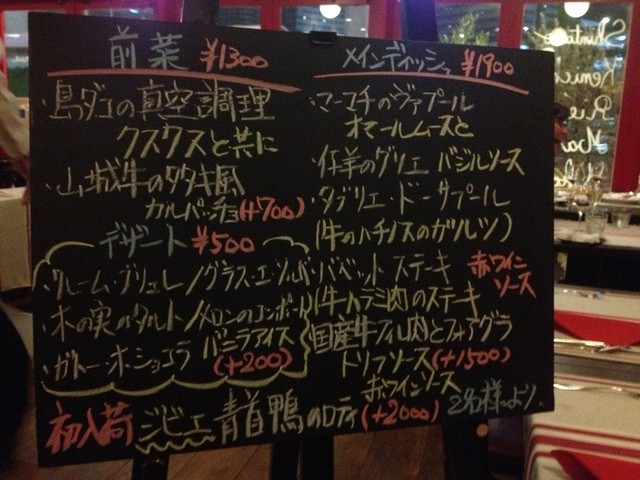 前菜 ¥1300
・島ダコの真空調理
クスクスと共に
・山城牛のタタキ風
カルパッチョ(+700)
デザート ¥500
クレーム・ブリュレ/グラス・エ・ソルベ
木の実のタルト/メロンのコンポート
バニラアイス
ガトー・ホ・ショコラ (+200)
メインディッシュ ¥1900
・マーコチのヴァプール
オマールムースと
・仔羊のグリエ バジルソース
・タブリエ・ド・サプール
(牛のハチノスのカツレツ)
・バベット ステーキ 赤ワイン
ソース
(牛ハラミ肉のステーキ
国産牛フィレ肉とフォアグラ
トリフソース(+1500)
赤ワインソース
初入荷 ジビエ 青首鴨のロティ(+2000) 2名様より.